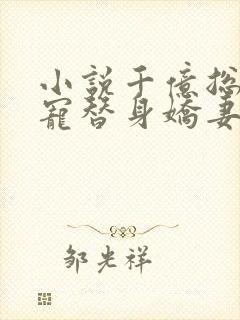 小說千億總
寵替身嬌妻
邹光祥